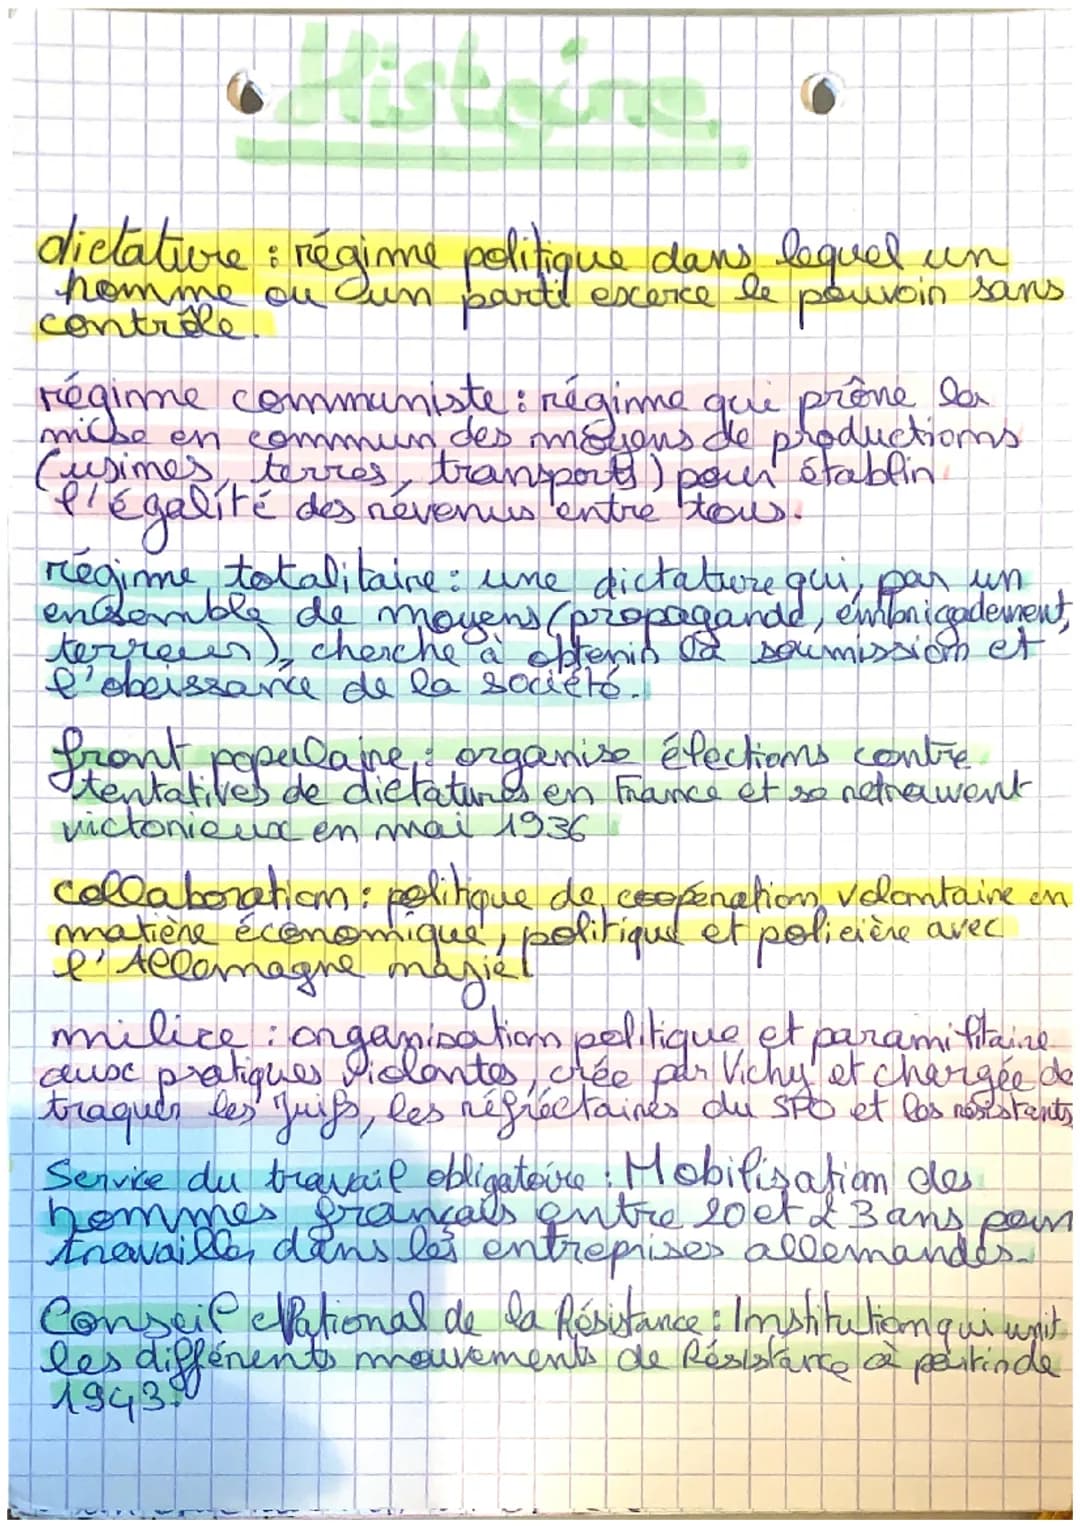 Histoire
dictature : régime politique dans lequel un
homme ou un parti exerce le pouvoir sans
contrôle.
régime communiste : régime qui prône la
mise en commun des moyens de productions
(usines, terres, transports) pour établir
l'égalité des revenus entre tous.
régime totalitaire : une dictature qui, par un
ensemble de moyens (propagande, embrigadement,
terreur), cherche à obtenir la soumission et
l'obeissance de la société.
front populaire : organise élections contre
tentatives de dictatures en France et se retrouvent
victorieux en mai 1936
collaboration : politique de coopération volontaire en
matière économique, politique et policière avec
l'Allemagne nazie.
milice : organisation politique et paramilitaire
aux pratiques violentes, crée par Vichy et chargée de
traquer les Juifs, les réfréctaires du STO et les résistants
Service du travail obligatoire : Mobilisation des
hommes français entre 20 et 23 ans pour
travailler dans les entreprises allemandes.
Conseil National de la Résistance : Institution qui unit
les différents mouvements de Résistance à partir de
1943.